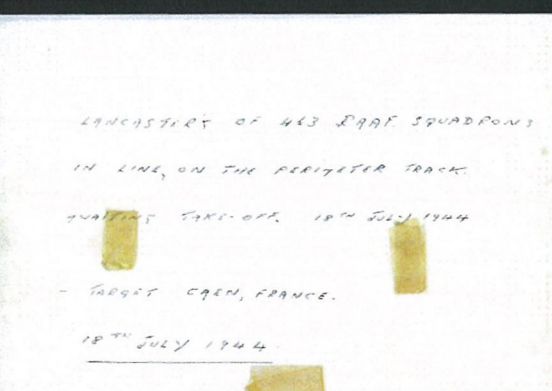 LANCASTER'S OF 463 RAAF. SQUADRONS
IN LINE, ON THE PERIMETER TRACK.
AWAITING TAKE-OFF. 18TH JULY 1944
- TARGET CAEN, FRANCE.
18TH JULY 1944